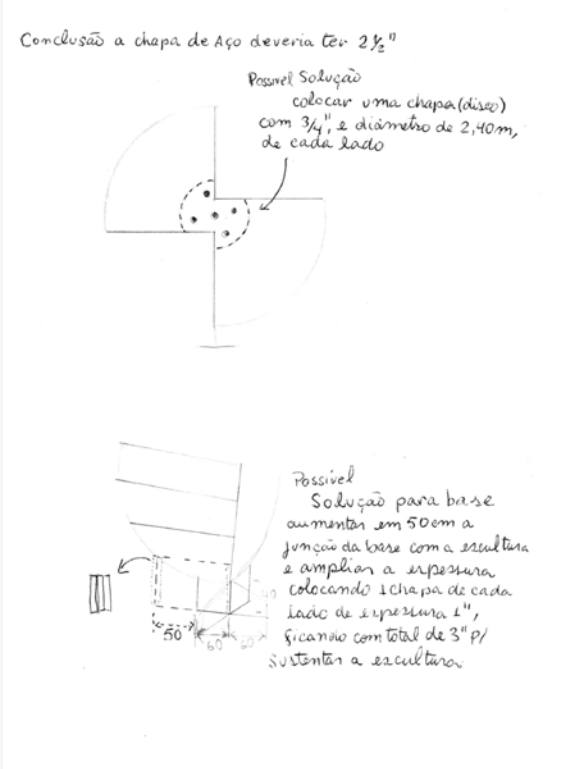 Conclusão a chapa de Aço deveria ter 2 1/2"
Possivel Solução
colocar uma chapa (disco)
com 3/4", e diâmetro de 2,40m,
de cada lado
Possível
Solução para base
aumentar em 50cm a
junção da base com a escultura
e ampliar a expessura
colocando 1 chapa de cada
lado de expessura 1",
ficando com total de 3" p/
sustentar a escultura
50
60